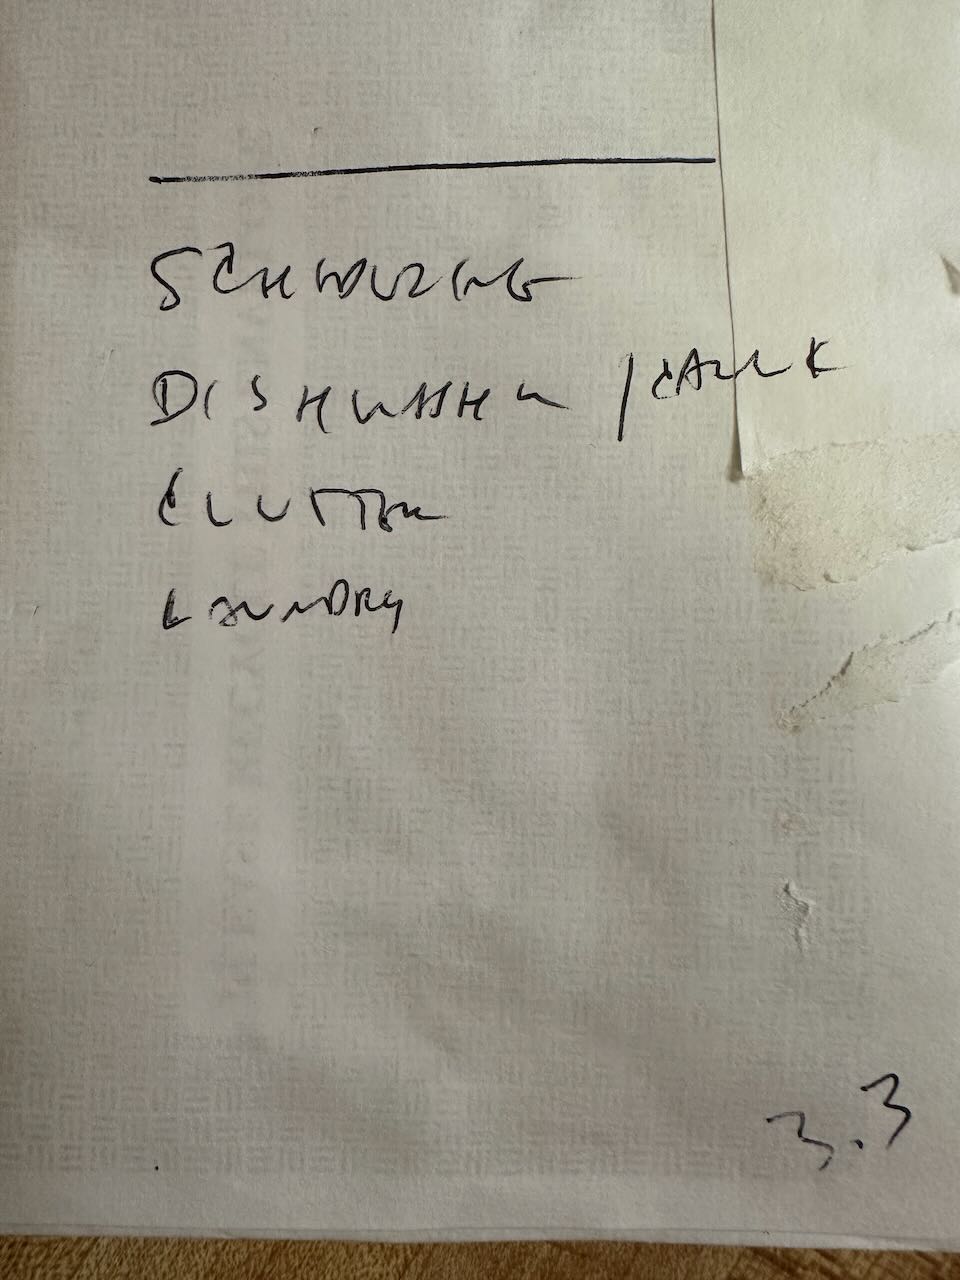 SCHEDULING
DISHWASHER / CAULK
CLUTTER
LAUNDRY
3.3